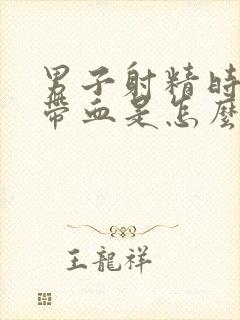 男子射精時
帶血是怎麼
王龍祥